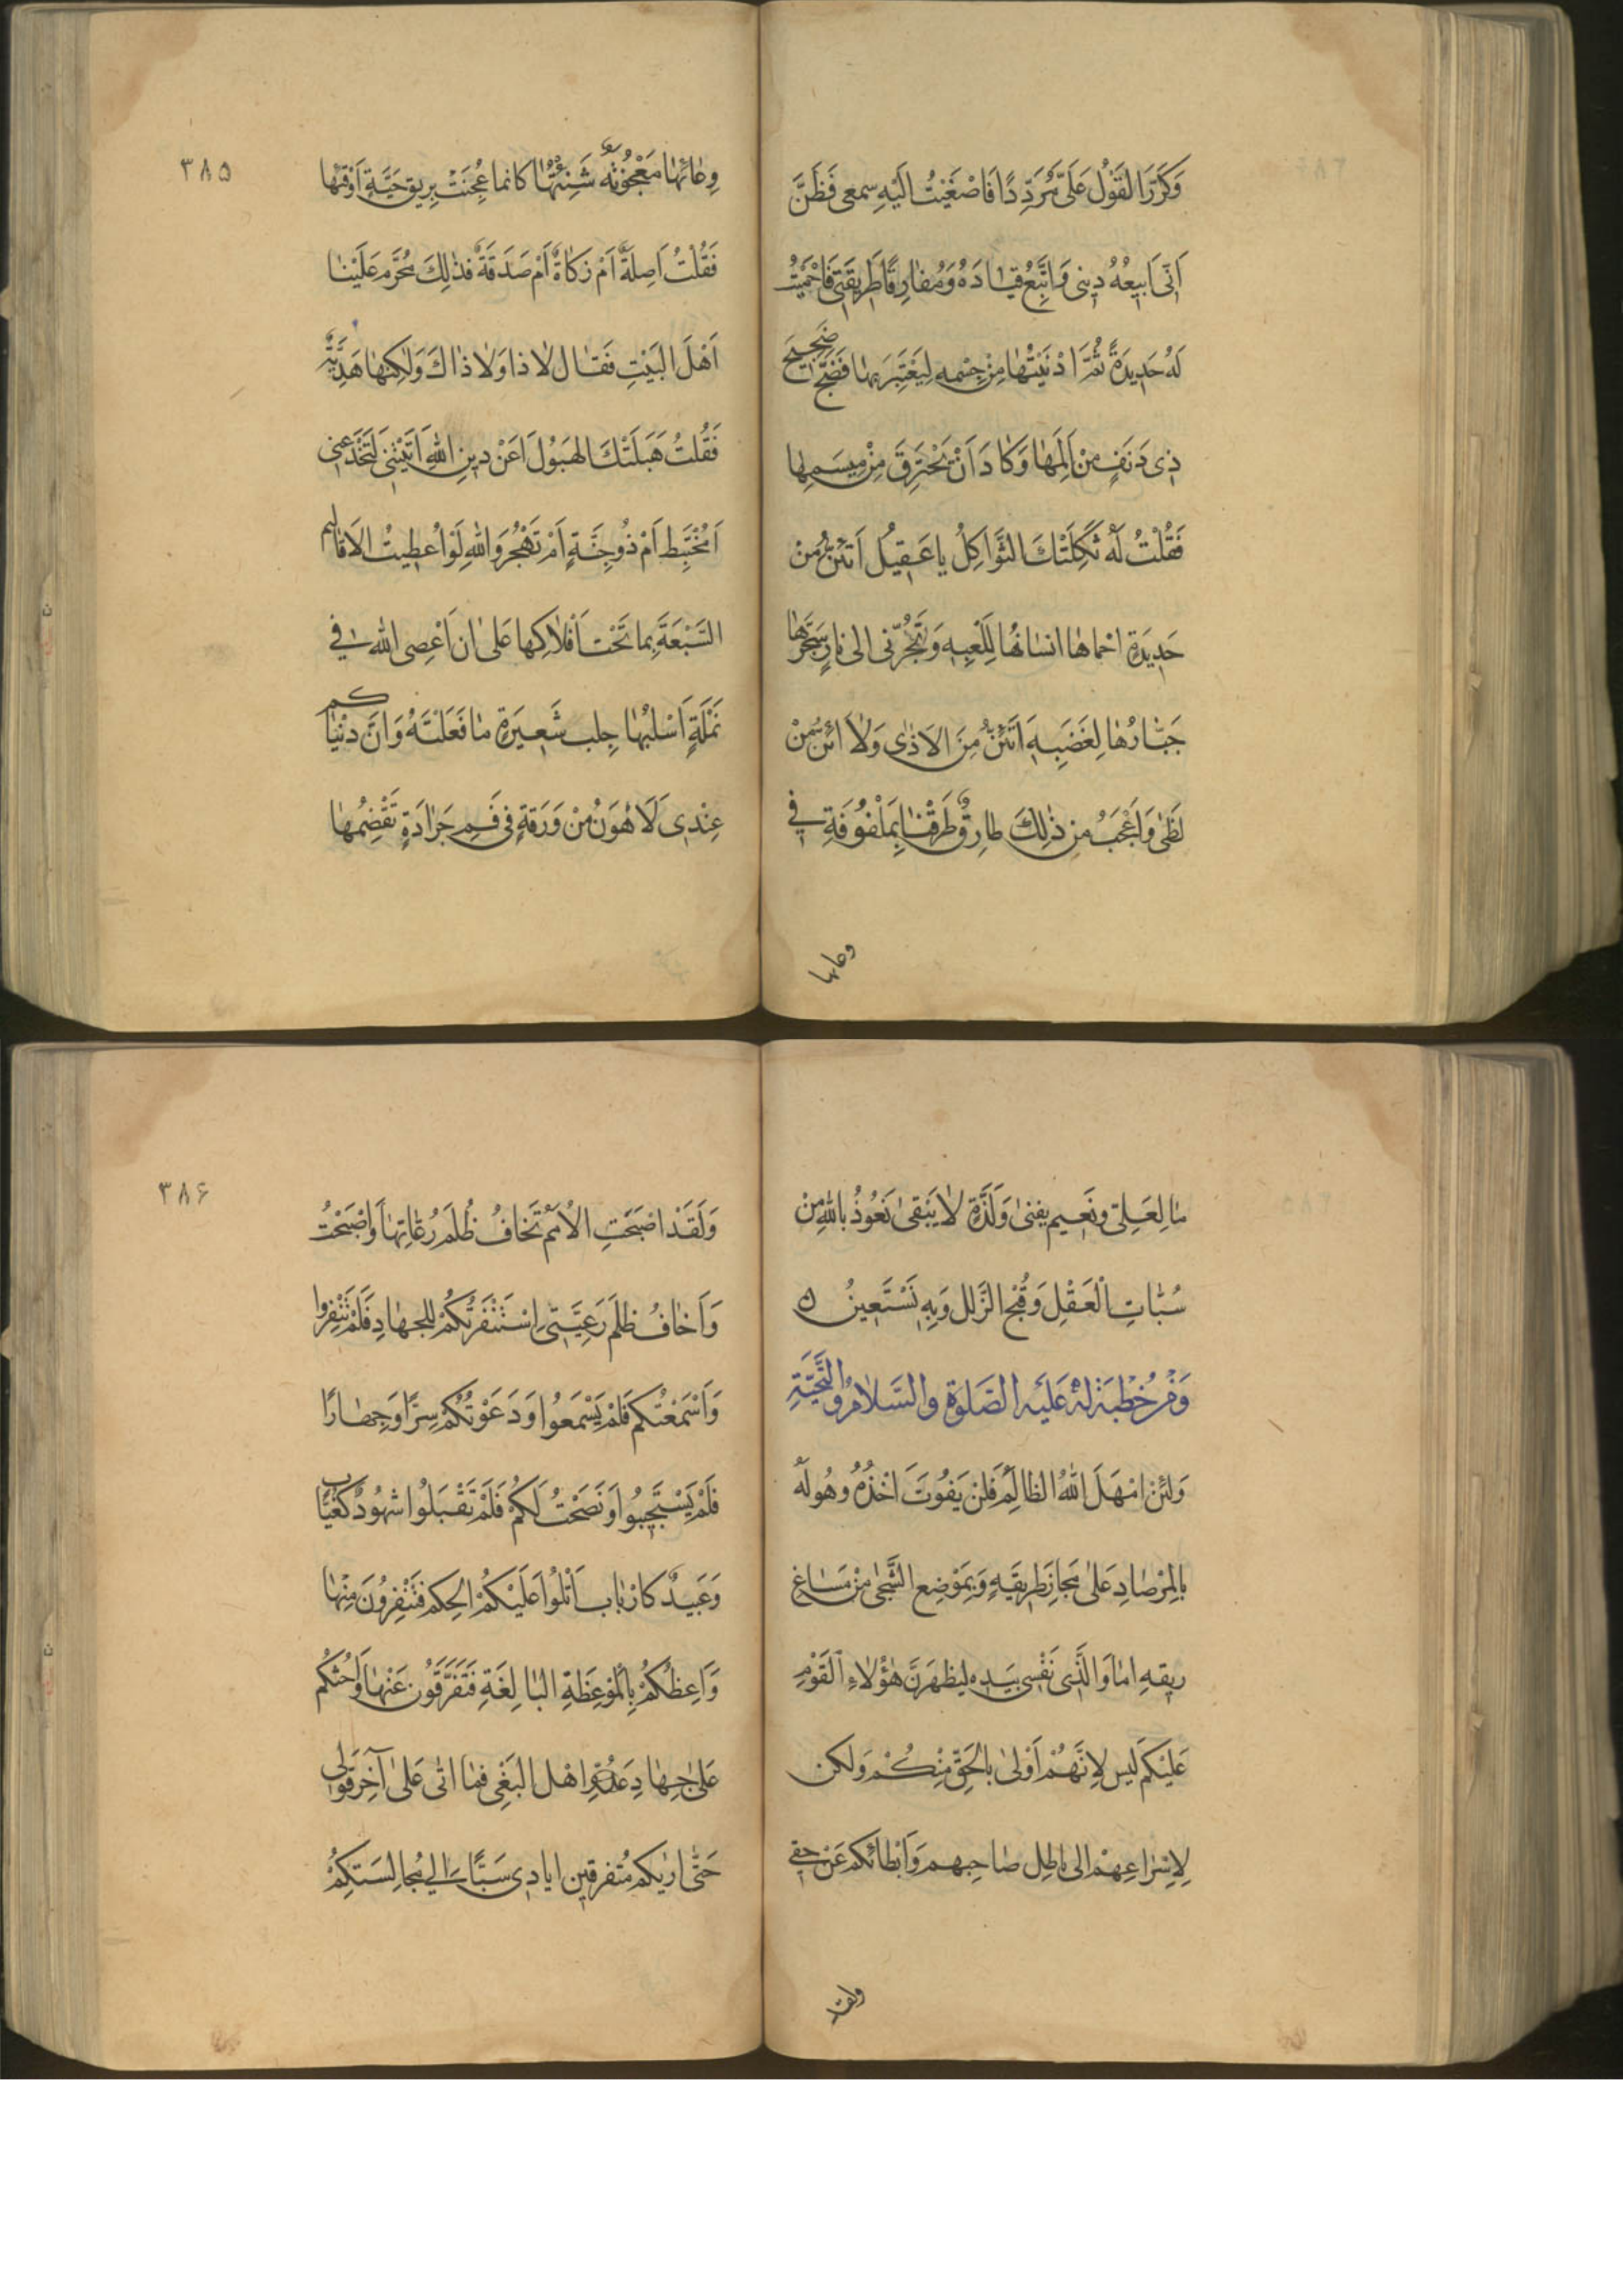 وَكَرَّرَ الْقَوْلَ عَلَىَّ مُرَدِّدًا فَاَصْغَيْتُ اِلَيْهِ سمعى فَظَنَّ
اَنّى اَبيعُهُ دينى وَاَتَّبِعُ قيادَهُ وَمُفارِقًا طَريقَتى فَاَحْمَيْتُ
لَهُ حَديدَةً ثُمَّ اَدْنَيْتُها مِنْ جِسْمِه لِيَعْتَبِرَ بِها فَضَجَّ ضَجيجَ
ذى دَنَفٍ مِنْ اَلَمِها وَكادَ اَنْ يَحْتَرِقَ مِنْ ميسَمِها
فَقُلْتُ لَهُ ثَكِلَتْكَ الثَّواكِلُ يا عَقيلُ اَتَئِنُّ مِنْ
حَديدَةٍ احماها انسانُها لِلَعْبِه وَتَجُرُّنى الى نارٍ سَجَّرَها
جَبّارُها لِغَضَبِه اَتَئِنُّ مِنَ الاَذى وَلا اَئِنُّ مِنْ
لَظى وَاَعْجَبُ مِن ذلِكَ طارِقٌ طَرَقَنا بِمَلْفُوفَةٍ فى
وعائها
٣٨٥
وِعائِها مَعْجُونَةٍ شَنِئْتُها كانما عُجِنَتْ بِريقِ حَيَّةٍ اَوْقَيْئِها
فَقُلْتُ اَصِلَةٌ اَمْ زَكاةٌ اَمْ صَدَقَةٌ فذلِكَ مُحَرَّم عَلَيْنا
اَهْلَ الْبَيْتِ فَقال لا ذا وَلا ذاكَ وَلكِنَّها هَدِيَّةٌ
فَقُلْتُ هَبَلَتْكَ الهَبُولُ اَعَنْ دينِ اللهِ اَتَيْتَنى لِتَخْدَعَنى
اَمُخْتَبِط اَمْ ذُوجِنَّةٍ اَمْ تَهْجُرُ وَاللهِ لَوْاُعطيتُ الاَقاليم
السَّبْعَةَ بِما تَحْتَ اَفْلاكِها عَلى ان اَعْصِى الله فى
نَمْلَةٍ اَسْلُبُها جِلب شَعيرَةٍ ما فَعَلْتَهُ وَانَّ دنْياكم
عِنْدى لَاَهْوَنُ مْنْ وَرَقةٍ فى فَمِ جَرادَةٍ تَقْضِمُها
ما لِعَلِىّ ونَعيم يفنى وَلَذَّةٍ لا يَبْقى نَعُوذُ بِاللهِ مِنْ
سُبّاتِ الْعَقْلِ وَقُبْحِ الزَّلل وَبِه نَسْتَعينُ ۵
وَمْن خُطْبَة لهُ عَلَيْه الصَّلوة والسَّلامُ والتَّحِيَّةِ
وَلَئِنْ اَمْهَلَ اللهُ الظالِمَ فَلَنْ يَفُوتَ اَخْذُهُ وهُولَهُ
بِالمِرْصادِ عَلى مَجازِ طَريقِهِ وَبِمَوْضِعِ الشَّجى مِنْ مَساغِ
ريقِهِ اما وَالَّذى نَفْسى بيَدِه ليظهَرَنَّ هؤُلاءِ الْقَوْمِ
عَلَيْكُم لَيس لِاَنَّهُمْ اَوْلى بِالحَقِّ مِنْكُمْ وَلكن
لِاِسْراعِهِمْ الى باطِل صاحِبهم وَاَبْطائكم عَنْ حقى
ولقد
٣٨۶
وَلَقَدْ اَصْبَحَتِ الاُمَمُ تَخافُ ظُلْمَ رُعاتِها وَاَصْبَحْتُ
وَاَخافُ ظلمَ رَعِيَّتى اِسْتَنْفَرْتُكُمْ لِلجهادِ فَلَمْ تَنْفِروا
وَاَسْمَعْتُكم فَلَمْ يَسْمَعُوا وَدَعَوْتُكُمْ سِرًّا وَجِهارًا
فَلَمْ يَسْتَجيبُوا وَنَصَحْتُ لَكُمْ فَلَمْ تَقْبَلُوا شهُودٌ كَغُيّاب
وَعَبيدٌ كَارْباب اَتْلُوا عَلَيْكُمُ الحِكم فتَنْفِرُونَ مِنْها
وَاَعِظُكُمْ بِالْمَوْعِظَةِ البالِغَةِ فَتَفَرَّقُونَ عَنْها وَاَحُثكُم
عَلى جِهادِ اهْل البَغْىِ فما اتى عَلى آخِرِ قَوْلى
حَتّى اَريكم مُتفرقين ايادى سَبَا الى مُجالِسَتِكُمْ